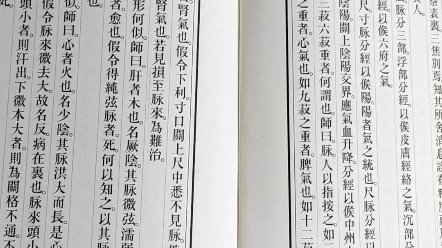 衰裏三焦別知其所舍消息診看
人
脈分三部。浮部分經以候皮膚經絡之氣。沉部分
經以候六府之氣
尺。脈分經以候陽。陽者氣之統也。尺脈分經
陰陽。關上陰陽交界。應氣血升降。分經以候中州
三菽六菽重者。何謂也。師曰。脈人以指按之。如三
之重者。心氣也。如九菽之重者。脾氣也。如十二菽
腎氣也。假令下利。寸口關上尺中悉不見脈。
腎氣也。若見損至。脈來為難治。
形何似。師曰。肝者木也。名厥陰。其脈微弦濡弱
者。愈也。假令得純弦脈者。死。何以知之。以其脈
似。師曰。心者火也。名少陰。其脈洪大而長。是心
假令脈來微去大。故名反。病在裏也。脈來頭小
頭小者。則汗出。下微本大者。則為關格不通。不
死。